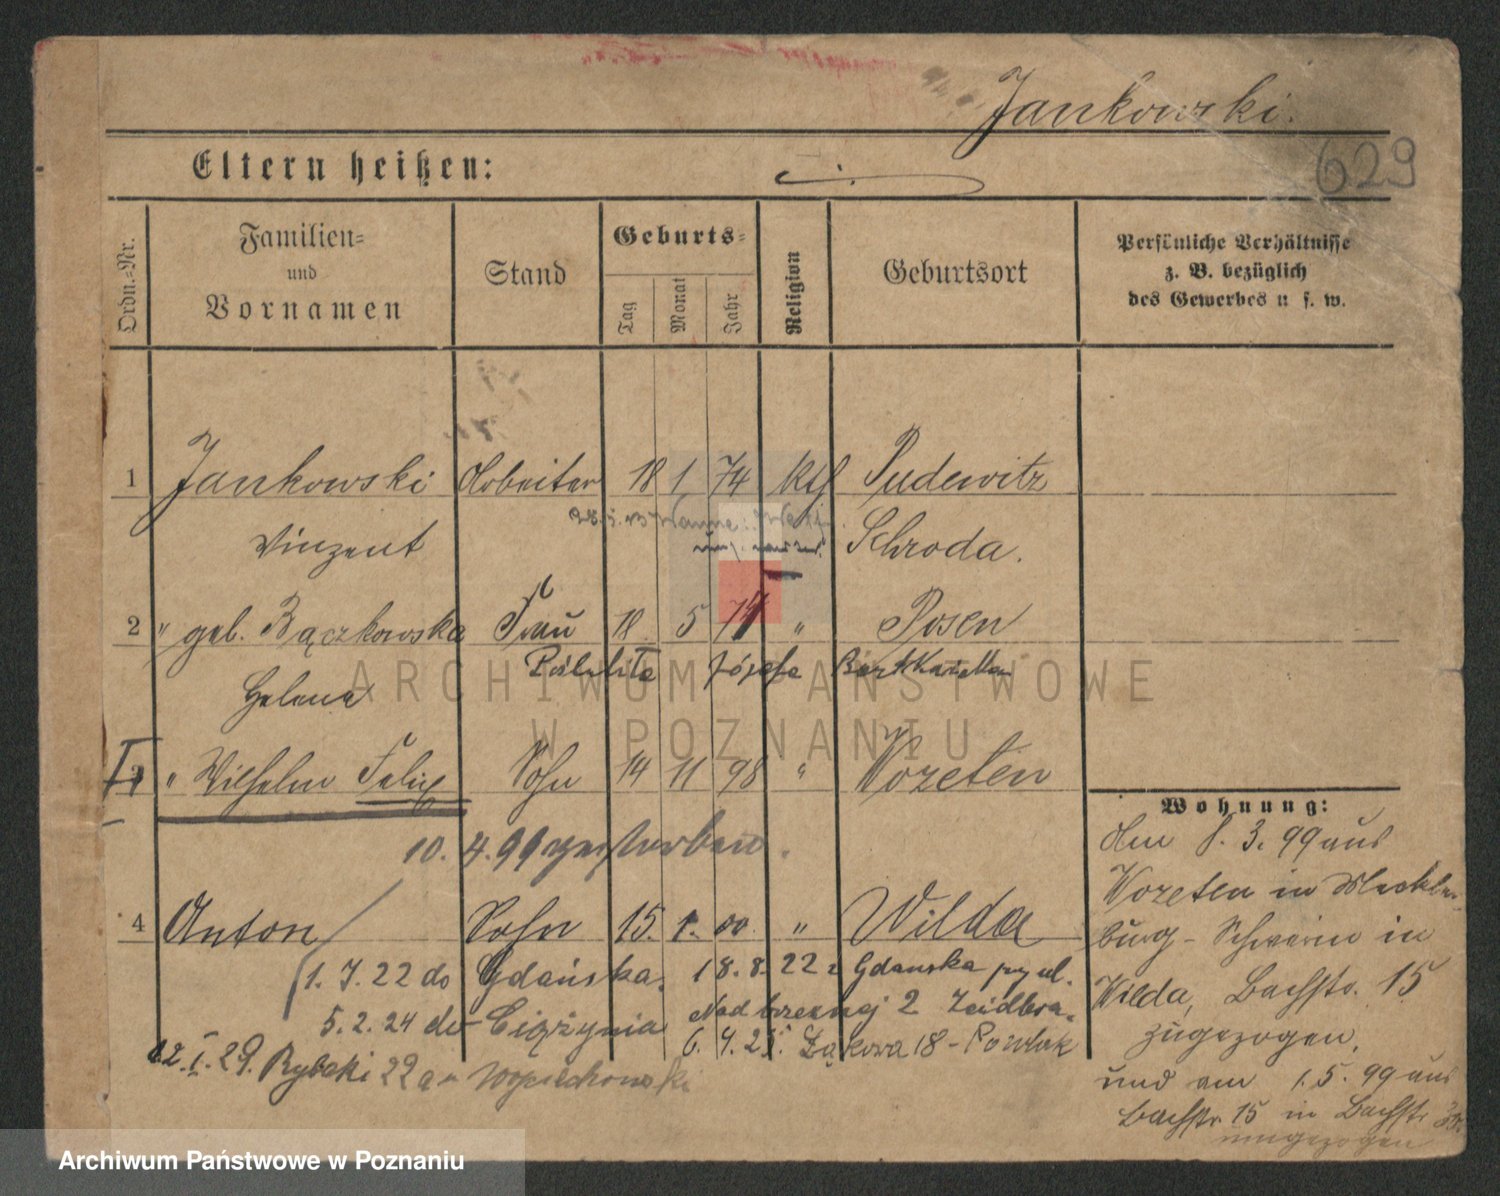 Jankowski.
629
Eltern heißen:
Ordn.-Nr.
Familien-
und
Vornamen
Stand
Geburts-
Tag
Monat
Jahr
Religion
Geburtsort
Persönliche Verhältnisse
z. B. bezüglich
des Gewerbes u s. w.
1 Jankowski Arbeiter 18 1 74 kth Pudewitz
Vinzent Schroda.
2 " geb. Bączkowska Frau 18 5 74 " Posen
Helena
Józefa
" Wilhelm Felix Sohn 14 11 98 " Wozeten
10. 4. 99 gestorben.
4 Anton Sohn 15. 1. 00 " Wilda
1. 7. 22 do Gdańska. 18. 8. 22 Gdańska
5. 2. 24 do Ciążynia Nadbrzeżnej 2
6. 7. 25. Łąkowa 18 -
12. I. 29. Rybaki 22a
Wohnung:
Am 8. 3. 99 aus
Wozeten in Mecklen-
burg-Schwerin in
Wilda, Bachstr. 15
zugezogen,
und am 1. 5. 99 aus
Bachstr 15 in Bachstr
umgezogen
ARCHIWUM PAŃSTWOWE
W POZNANIU
Archiwum Państwowe w Poznaniu